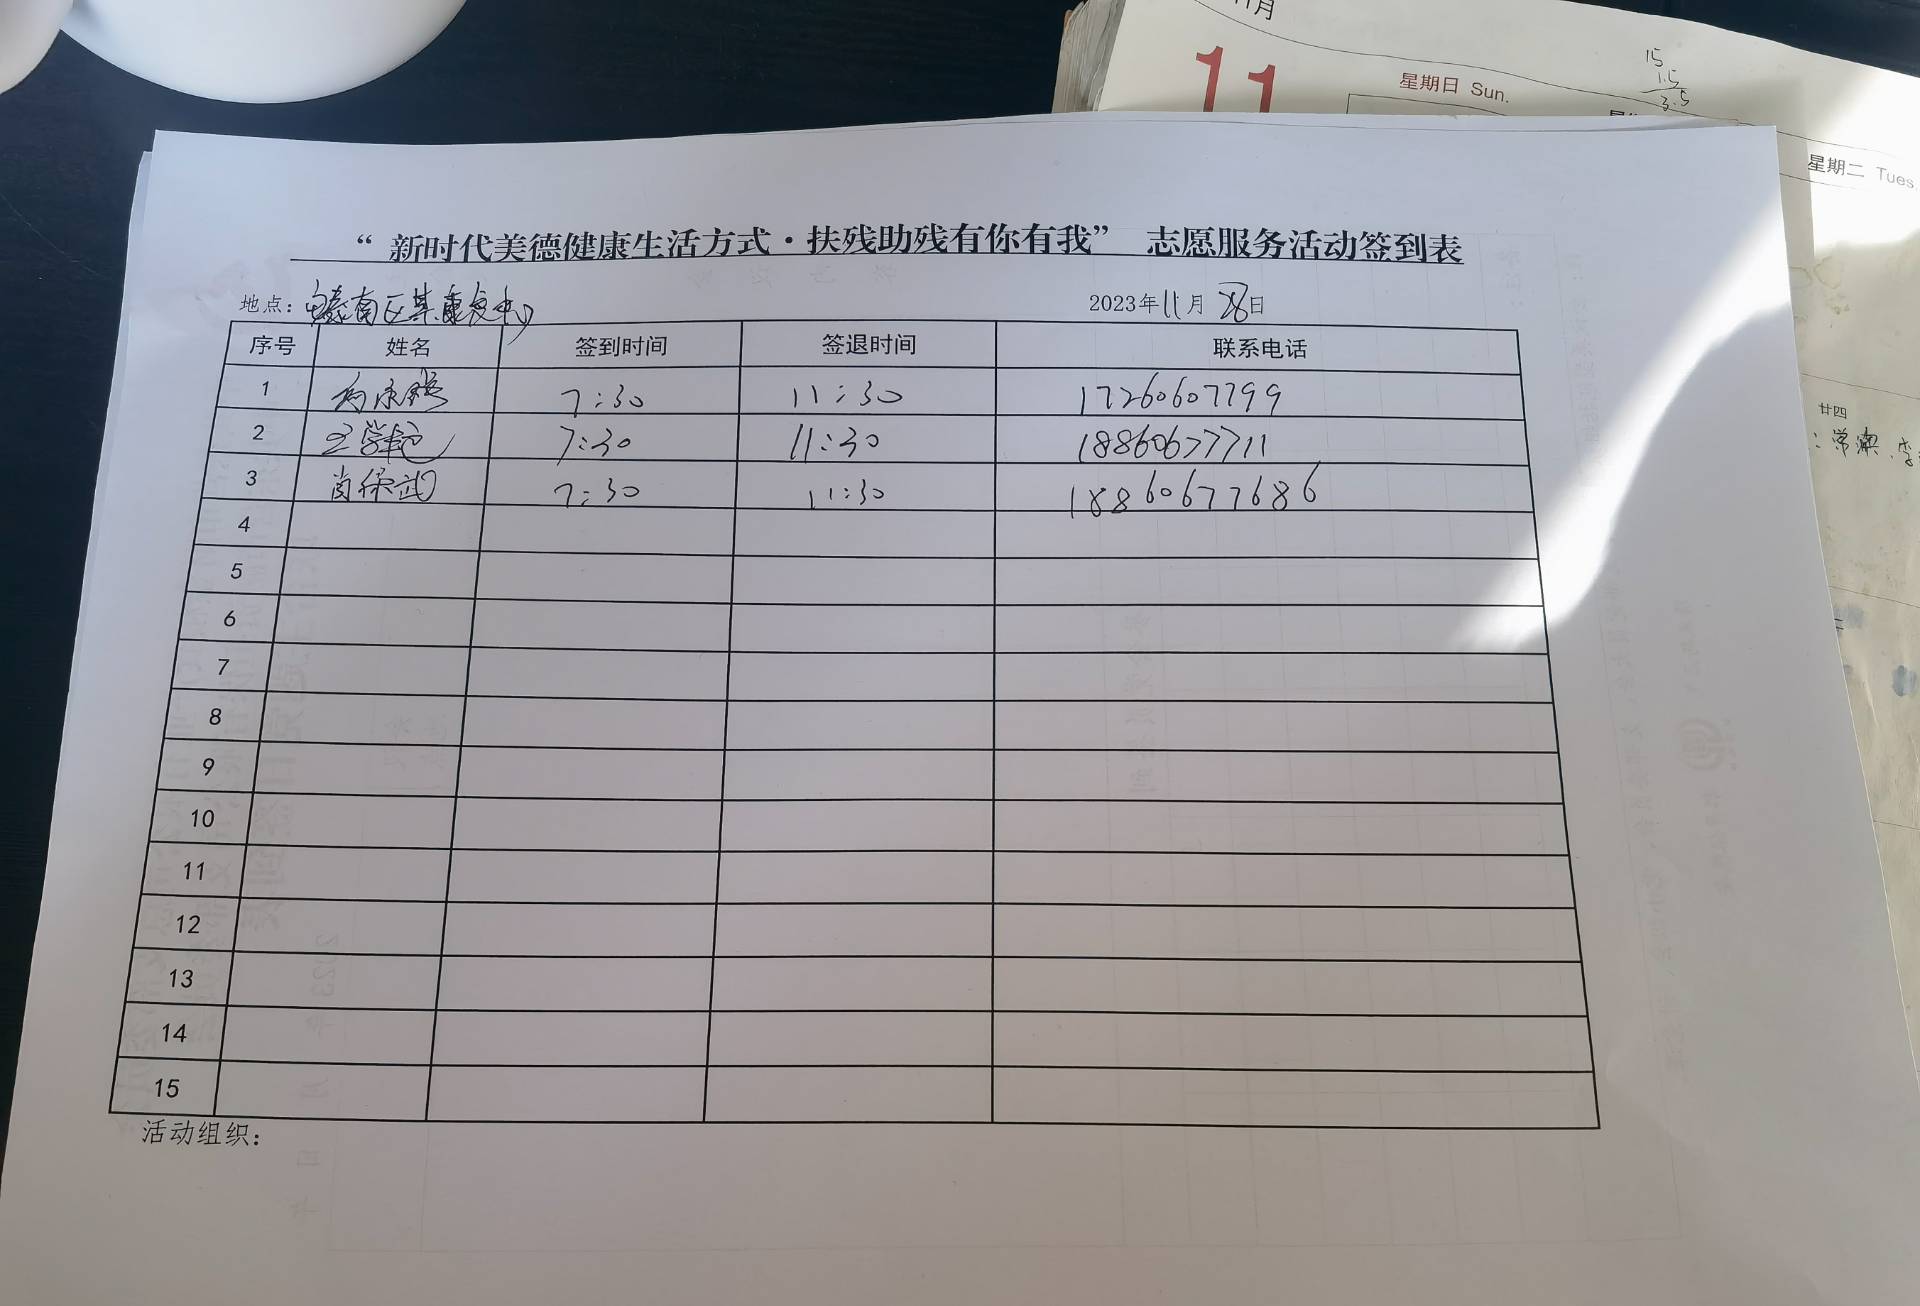 11月
11
星期日 Sun.
15
1.5
3.5
星期二 Tues.
廿四
“新时代美德健康生活方式·扶残助残有你有我” 志愿服务活动签到表
地点：
2023年11月28日
序号 姓名 签到时间 签退时间 联系电话
1 7:30 11:30 17260607799
2 7:30 11:30 18860677711
3 肖保武 7:30 11:30 18860677686
4
5
6
7
8
9
10
11
12
13
14
15
活动组织：